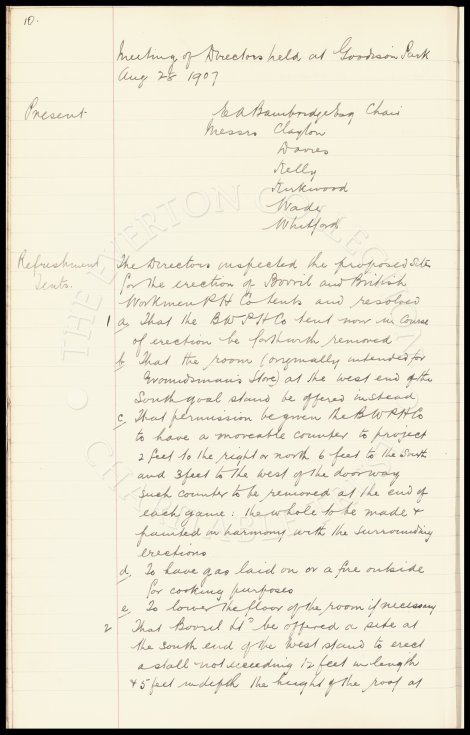 10.
Meeting of Directors held at Goodison Park
Aug 28 1907
Present
E A Bainbridge Esq Chair
Messrs Clayton
Davies
Kelly
Kirkwood
Wade
Whitford
Refreshment
Tents.
The Directors inspected the proposed site
for the erection of Bovril and British
Workmen P H Co tents and resolved
1 a. That the B W P H Co tent now in course
of erection be forthwith removed
b. That the room (originally intended for
Groundsmans Store) at the west end of the
South goal stand be offered instead
c. That permission be given the B W P H Co
to have a moveable counter to project
2 feet to the right or north 6 feet to the South
and 3 feet to the west of the doorway
such counter to be removed at the end of
each game: the whole to be made &
painted in harmony with the surrounding
erections
d. To have gas laid on or a fire outside
for cooking purposes
e. To lower the floor of the room if necessary
2 That Bovril Ltd be offered a site at
the South end of the West stand to erect
a stall not exceeding 12 feet in length
& 5 feet in depth the height of the roof at
THE EVERTON COLLECTION
CHARITABLE